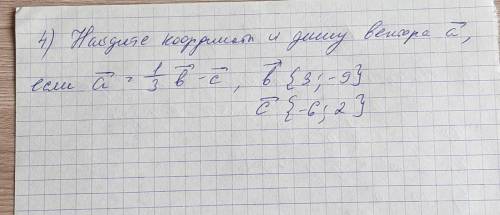 4) Найдите координаты и длину вектора a⃗,
если a⃗ = 1/3 b⃗ - c⃗, b⃗ {3; -9}
c⃗ {-6; 2}